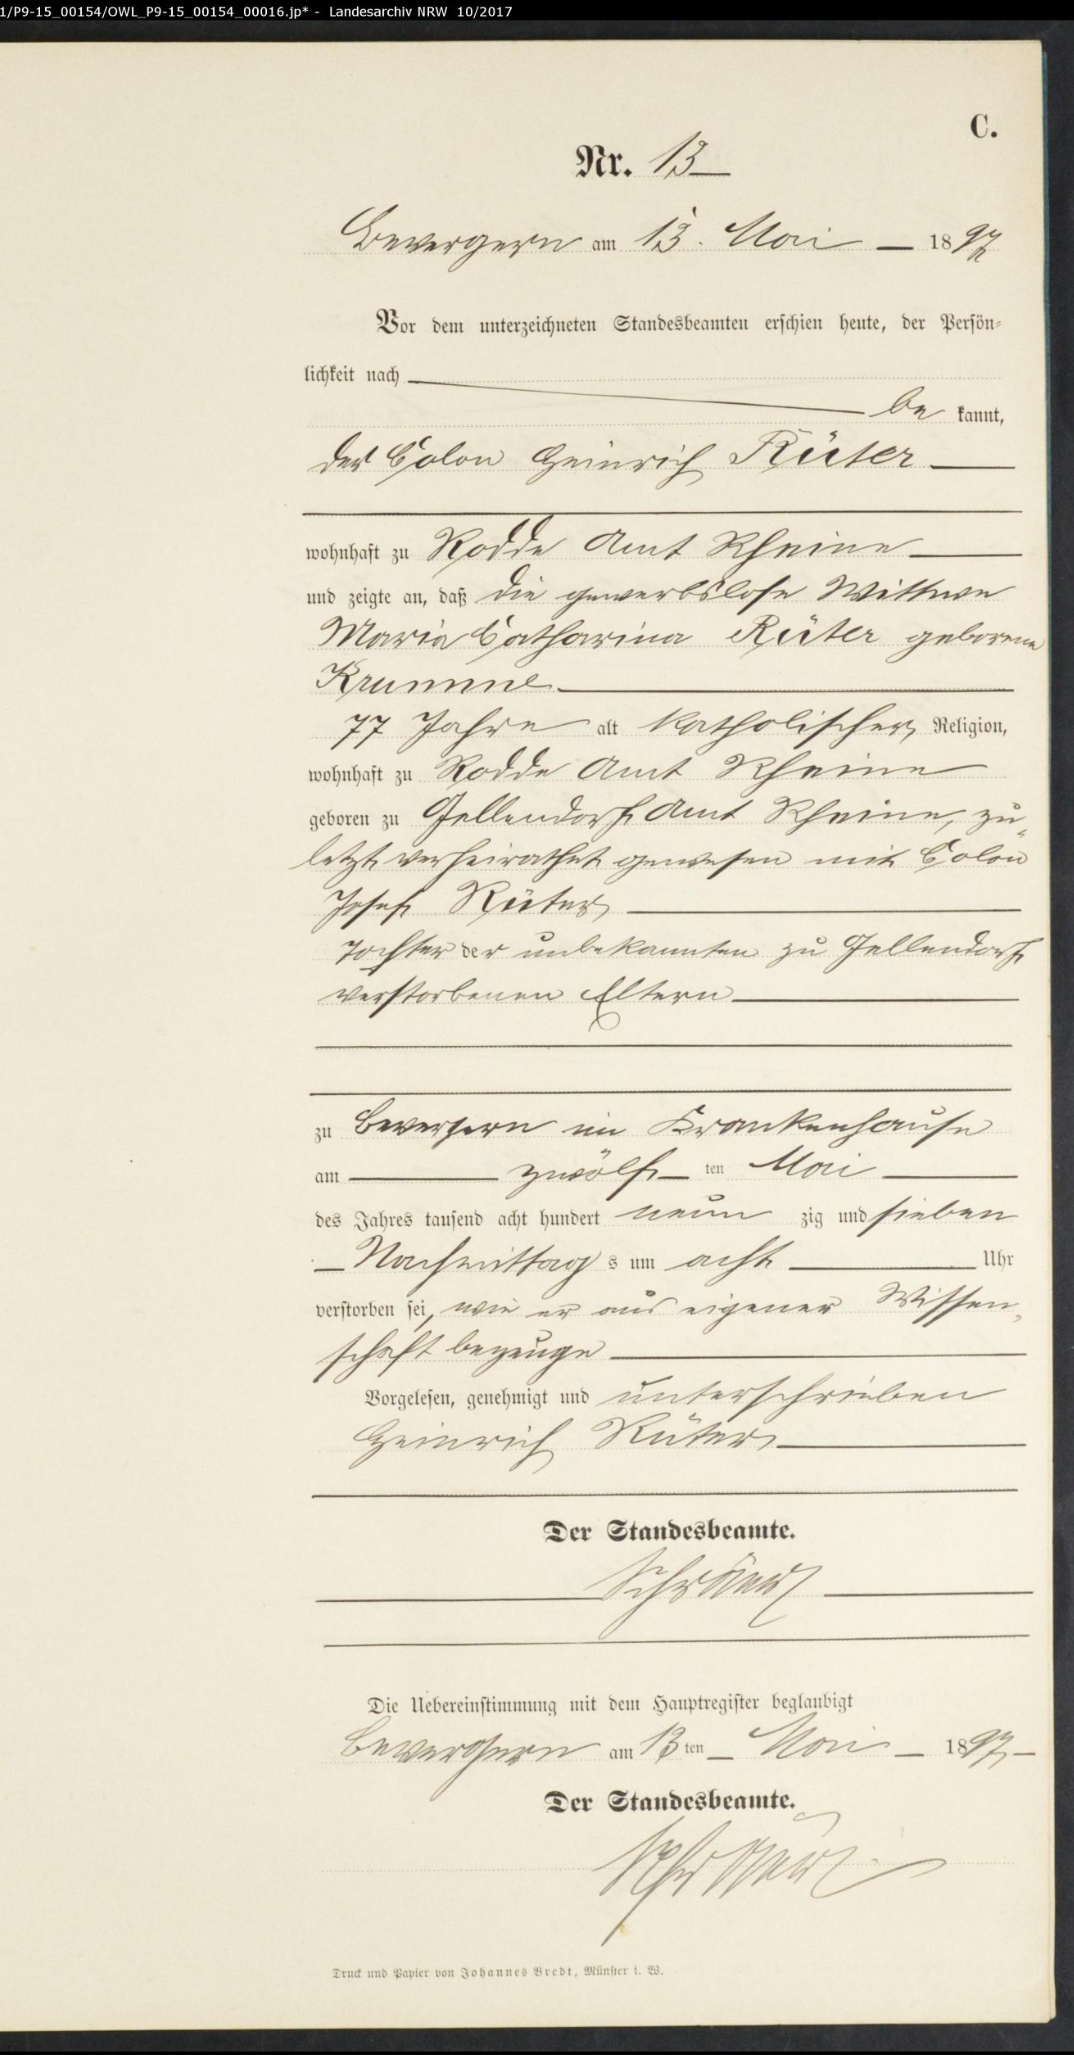 1/P9-15_00154/OWL_P9-15_00154_00016.jp* - Landesarchiv NRW 10/2017
C.
Nr. 13
Bevergern am 13. Mai 1897
Vor dem unterzeichneten Standesbeamten erschien heute, der Persön-
lichkeit nach
be kannt,
der Colon Heinrich Rüter
wohnhaft zu Rodde Amt Rheine
und zeigte an, daß die gewerbslose Wittwe
Maria Catharina Rüter geborene
Krumme
77 Jahre alt katholischer Religion,
wohnhaft zu Rodde Amt Rheine
geboren zu Gellendorf Amt Rheine, zu-
letzt verheirathet gewesen mit Colon
Josef Rüter
Tochter der unbekannten zu Gellendorf
verstorbenen Eltern
zu Bevergern im Krankenhause
am zwölf ten Mai
des Jahres tausend acht hundert neun zig und sieben
Nachmittag s um acht Uhr
verstorben sei, wie er aus eigener Wissen-
schaft bezeuge
Vorgelesen, genehmigt und unterschrieben
Heinrich Rüter
Der Standesbeamte.
Die Uebereinstimmung mit dem Hauptregister beglaubigt
Bevergern am 13 ten Mai 1897
Der Standesbeamte.
Druck und Papier von Johannes Bredt, Münster i. W.